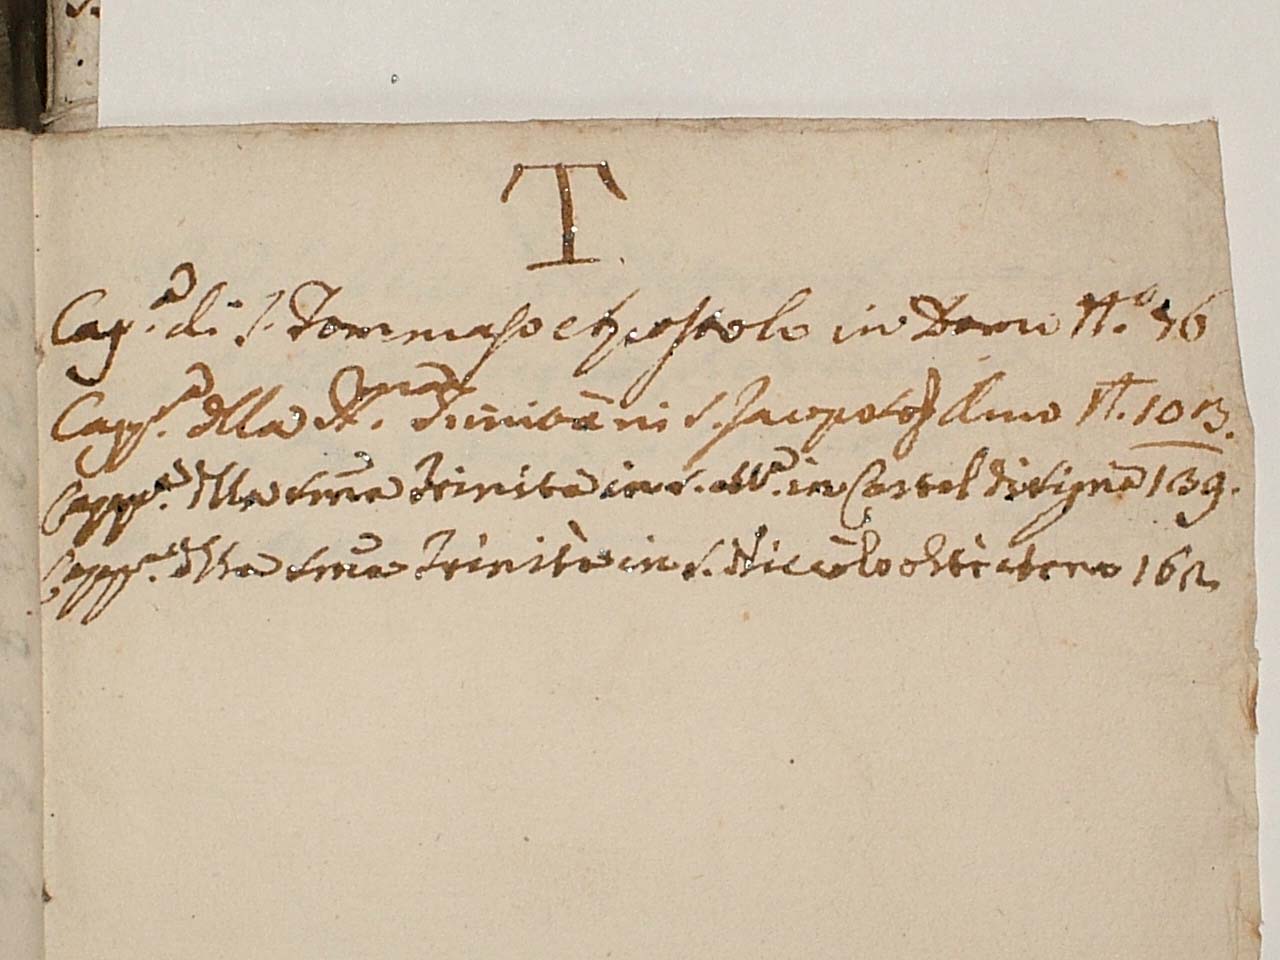 T.
Cap.a di S. Tommaso Apostolo in Domo N.o 36
Capp.a della SS.ma Trinità in S. Jacopo Arno N. 103.
Capp.a della SSma Trinità in S. M.a in Castel di Signa 139.
Capp.a della SSma Trinità in S. Niccolò oltr'Arno 162